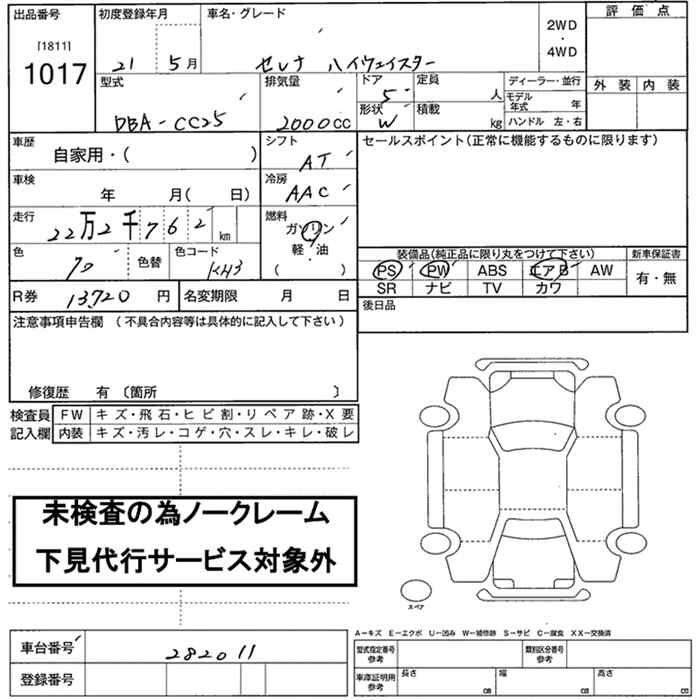 出品番号
[1811]
1017
初度登録年月
21 5月
車名・グレード
セレナ ハイウェイスター
2WD
・
4WD
評価点
外装 内装
型式
DBA-CC25
排気量
2000cc
ドア
5
形状
W
定員
人
積載
kg
ディーラー・並行
モデル年式 年
ハンドル 左・右
車歴
自家用・( )
シフト
AT
セールスポイント(正常に機能するものに限ります)
車検
年 月( 日)
冷房
AAC
走行
22万2千762km
燃料
ガソリン
軽・油
( )
色
クロ
色替
色コード
KH3
装備品(純正品に限り丸をつけて下さい)
新車保証書
PS PW ABS エアB AW
SR ナビ TV カワ
有・無
R券 13,720円
名変期限 月 日
後日品
注意事項申告欄 (不具合内容等は具体的に記入して下さい)
修復歴 有 〔箇所 〕
検査員記入欄
FW キズ・飛石・ヒビ割・リペア跡・X要
内装 キズ・汚レ・コゲ・穴・スレ・キレ・破レ
未検査の為ノークレーム
下見代行サービス対象外
スペア
A-キズ E-エクボ U-凹み W-補修跡 S-サビ C-腐食 XX-交換済
車台番号 282011
登録番号
型式指定番号
参考
類別区分番号
参考
車庫証明用
参考
長さ cm
幅 cm
高さ cm